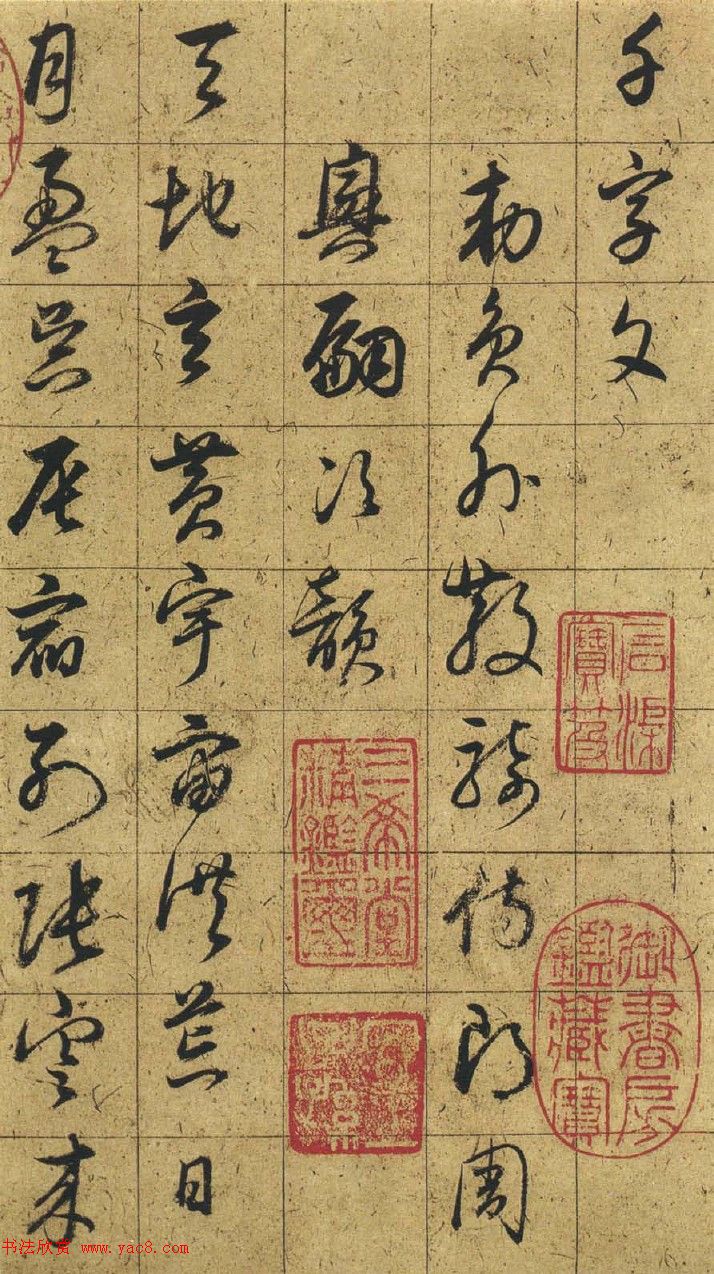 千字文
勑員外散騎侍郎周
興嗣次韻
天地玄黃宇宙洪荒日
月盈昃辰宿列張寒来
石渠寶笈
御書房鑑藏寶
三希堂精鑑璽
书法欣赏 www.yac8.com